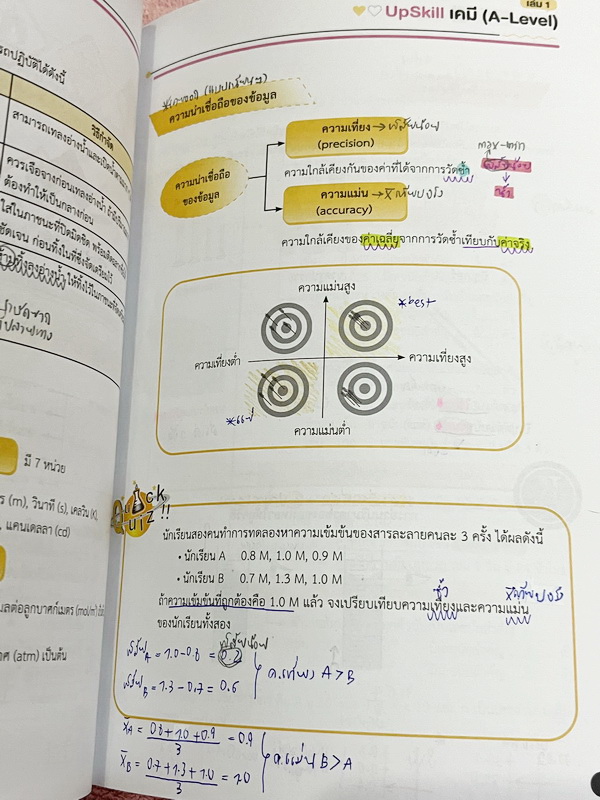 เล่ม 1
UpSkill เคมี (A-Level)
รถปฏิบัติได้ดังนี้
วิธีกำจัด
สามารถเทลงอ่างน้ำและเปิดน้ำตาม
ควรเจือจางก่อนเทลงอ่างน้ำ
ต้องทำให้เป็นกลางก่อน
ใส่ในภาชนะที่ปิดมิดชิด พร้อมติดฉลาก
ชัดเจน ก่อนทิ้งในที่ซึ่งจัดเตรียมไว้
ห้ามทิ้งลงอ่างน้ำ ให้ทิ้งไว้ในภาชนะที่จัด
มี 7 หน่วย
ร (m), วินาที (s), เคลวิน (K),
, แคนเดลลา (cd)
มลต่อลูกบาศก์เมตร (mol/m³)
าศ (atm) เป็นต้น
ความน่าเชื่อถือของข้อมูล
ความเที่ยง → พิสัยน้อย
(precision)
ความใกล้เคียงกันของค่าที่ได้จากการวัดซ้ำ
ความน่าเชื่อถือ
ของข้อมูล
ความแม่น → x̄
(accuracy)
ความใกล้เคียงของค่าเฉลี่ยจากการวัดซ้ำเทียบกับค่าจริง
ความแม่นสูง
*best
ความเที่ยงต่ำ
ความเที่ยงสูง
ความแม่นต่ำ
Quick
Quiz!!
นักเรียนสองคนทำการทดลองหาความเข้มข้นของสารละลายคนละ 3 ครั้ง ได้ผลดังนี้
• นักเรียน A 0.8 M, 1.0 M, 0.9 M
• นักเรียน B 0.7 M, 1.3 M, 1.0 M
ซ้ำ
ถ้าความเข้มข้นที่ถูกต้องคือ 1.0 M แล้ว จงเปรียบเทียบความเที่ยงและความแม่น
ของนักเรียนทั้งสอง
พิสัยน้อย
พิสัย A = 1.0-0.8 = 0.2
ค.เที่ยง A > B
พิสัย B = 1.3-0.7 = 0.6
x̄A = 0.8+1.0+0.9 / 3 = 0.9
ค.แม่น B > A
x̄B = 0.7+1.3+1.0 / 3 = 1.0